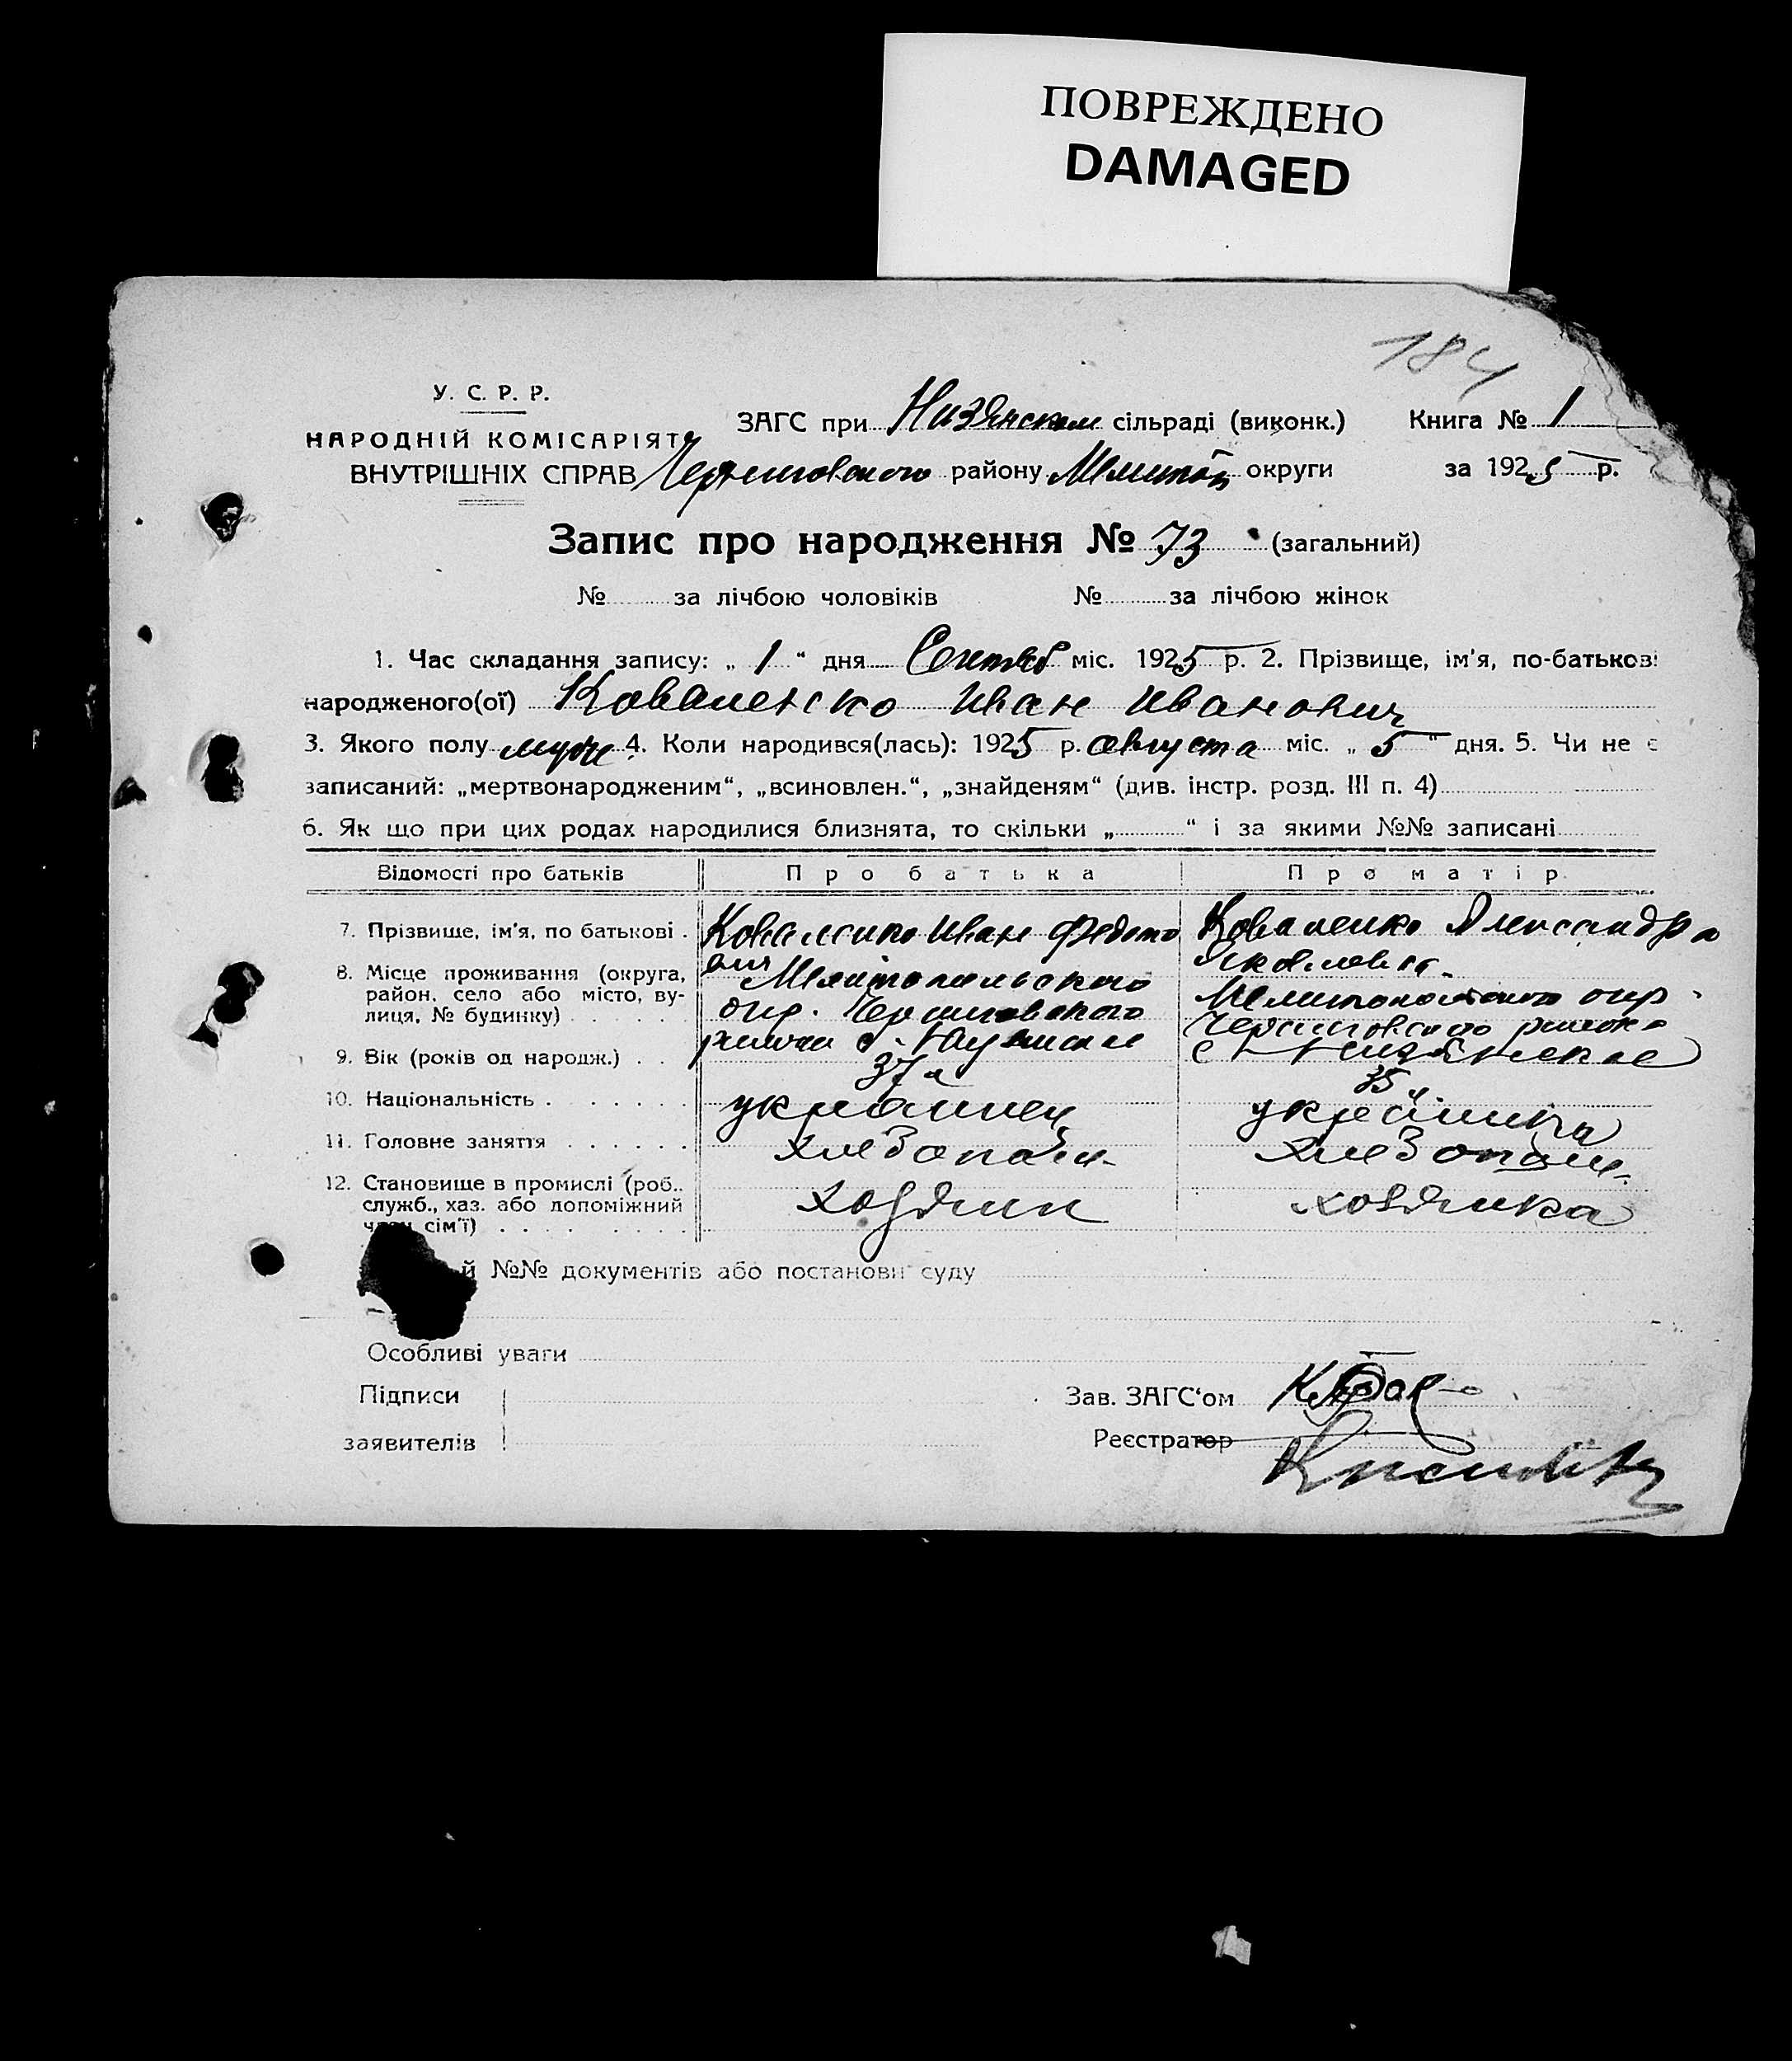 ПОВРЕЖДЕНО
DAMAGED
184
У. С. Р. Р.
НАРОДНІЙ КОМІСАРІЯТ
ВНУТРІШНІХ СПРАВ
ЗАГС при Низянском сільраді (виконк.) Книга № 1
Черниговского району Мелитоп округи за 1925 р.
Запис про народження № 73 (загальний)
№ за лічбою чоловіків № за лічбою жінок
1. Час складання запису: „ 1 “ дня міс. 1925 р. 2. Прізвище, ім'я, по-батькові
народженого(ої) Коваленско Иван Иванович
3. Якого полу муж. 4. Коли народився(лась): 1925 р. августа міс. „ 5 “ дня. 5. Чи не є
записаний: „мертвонародженим“, „всиновлен.“, „знайденям“ (див. інстр. розд. III п. 4)
6. Як що при цих родах народилися близнята, то скільки „ “ і за якими №№ записані
Відомості про батьків Про батька Про матір
7. Прізвище, ім'я, по батькові . Иван Федото Коваленко Александра
вич Яковлевна.
8. Місце проживання (округа, район, село або місто, вулиця, № будинку) Мелитопольского окр. Черниговского района с. Мелитопольского окр. Черниговского района с Низянское
9. Вік (років од народж.) . . 37 л 35 л
10. Національність . . . . . . украинец украинка
11. Головне заняття . . . . . . хлебопаш. хлебопаш.
12. Становище в промислі (роб., служб., хаз. або допоміжний член сім'ї) . . . . . . . . . хозяин хозяйка
й №№ документів або постанови суду
Особливі уваги
Підписи
заявителів
Зав. ЗАГС‘ом
Реєстратор